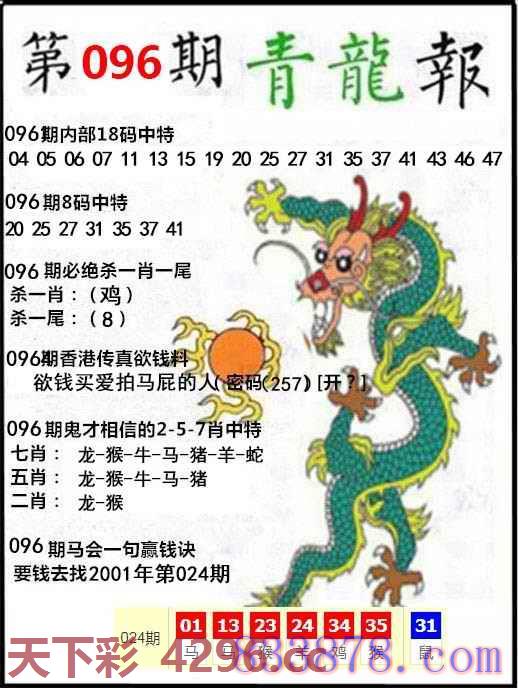 第096期青龍報
096期内部18码中特
04 05 06 07 11 13 15 19 20 25 27 31 35 37 41 43 46 47
096期8码中特
20 25 27 31 35 37 41
096期必绝杀一肖一尾
杀一肖：(鸡)
杀一尾：(8)
096期香港传真欲钱料
欲钱买爱拍马屁的人(密码(257)[开？]
096期鬼才相信的2-5-7肖中特
七肖： 龙-猴-牛-马-猪-羊-蛇
五肖： 龙-猴-牛-马-猪
二肖： 龙-猴
096期马会一句赢钱诀
要钱去找2001年第024期
024期 01 13 23 24 34 35 31
马 马 猴 羊 鸡 猴 鼠
天下彩 4296.cc
878.com